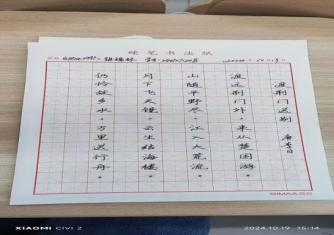 硬笔书法纸
渡荆门送别 唐李白
渡远荆门外，来从楚国游。
山随平野尽，江入大荒流。
月下飞天镜，云生结海楼。
仍怜故乡水，万里送行舟。
XIAOMI CIVI 2
2024.10.19 15:14